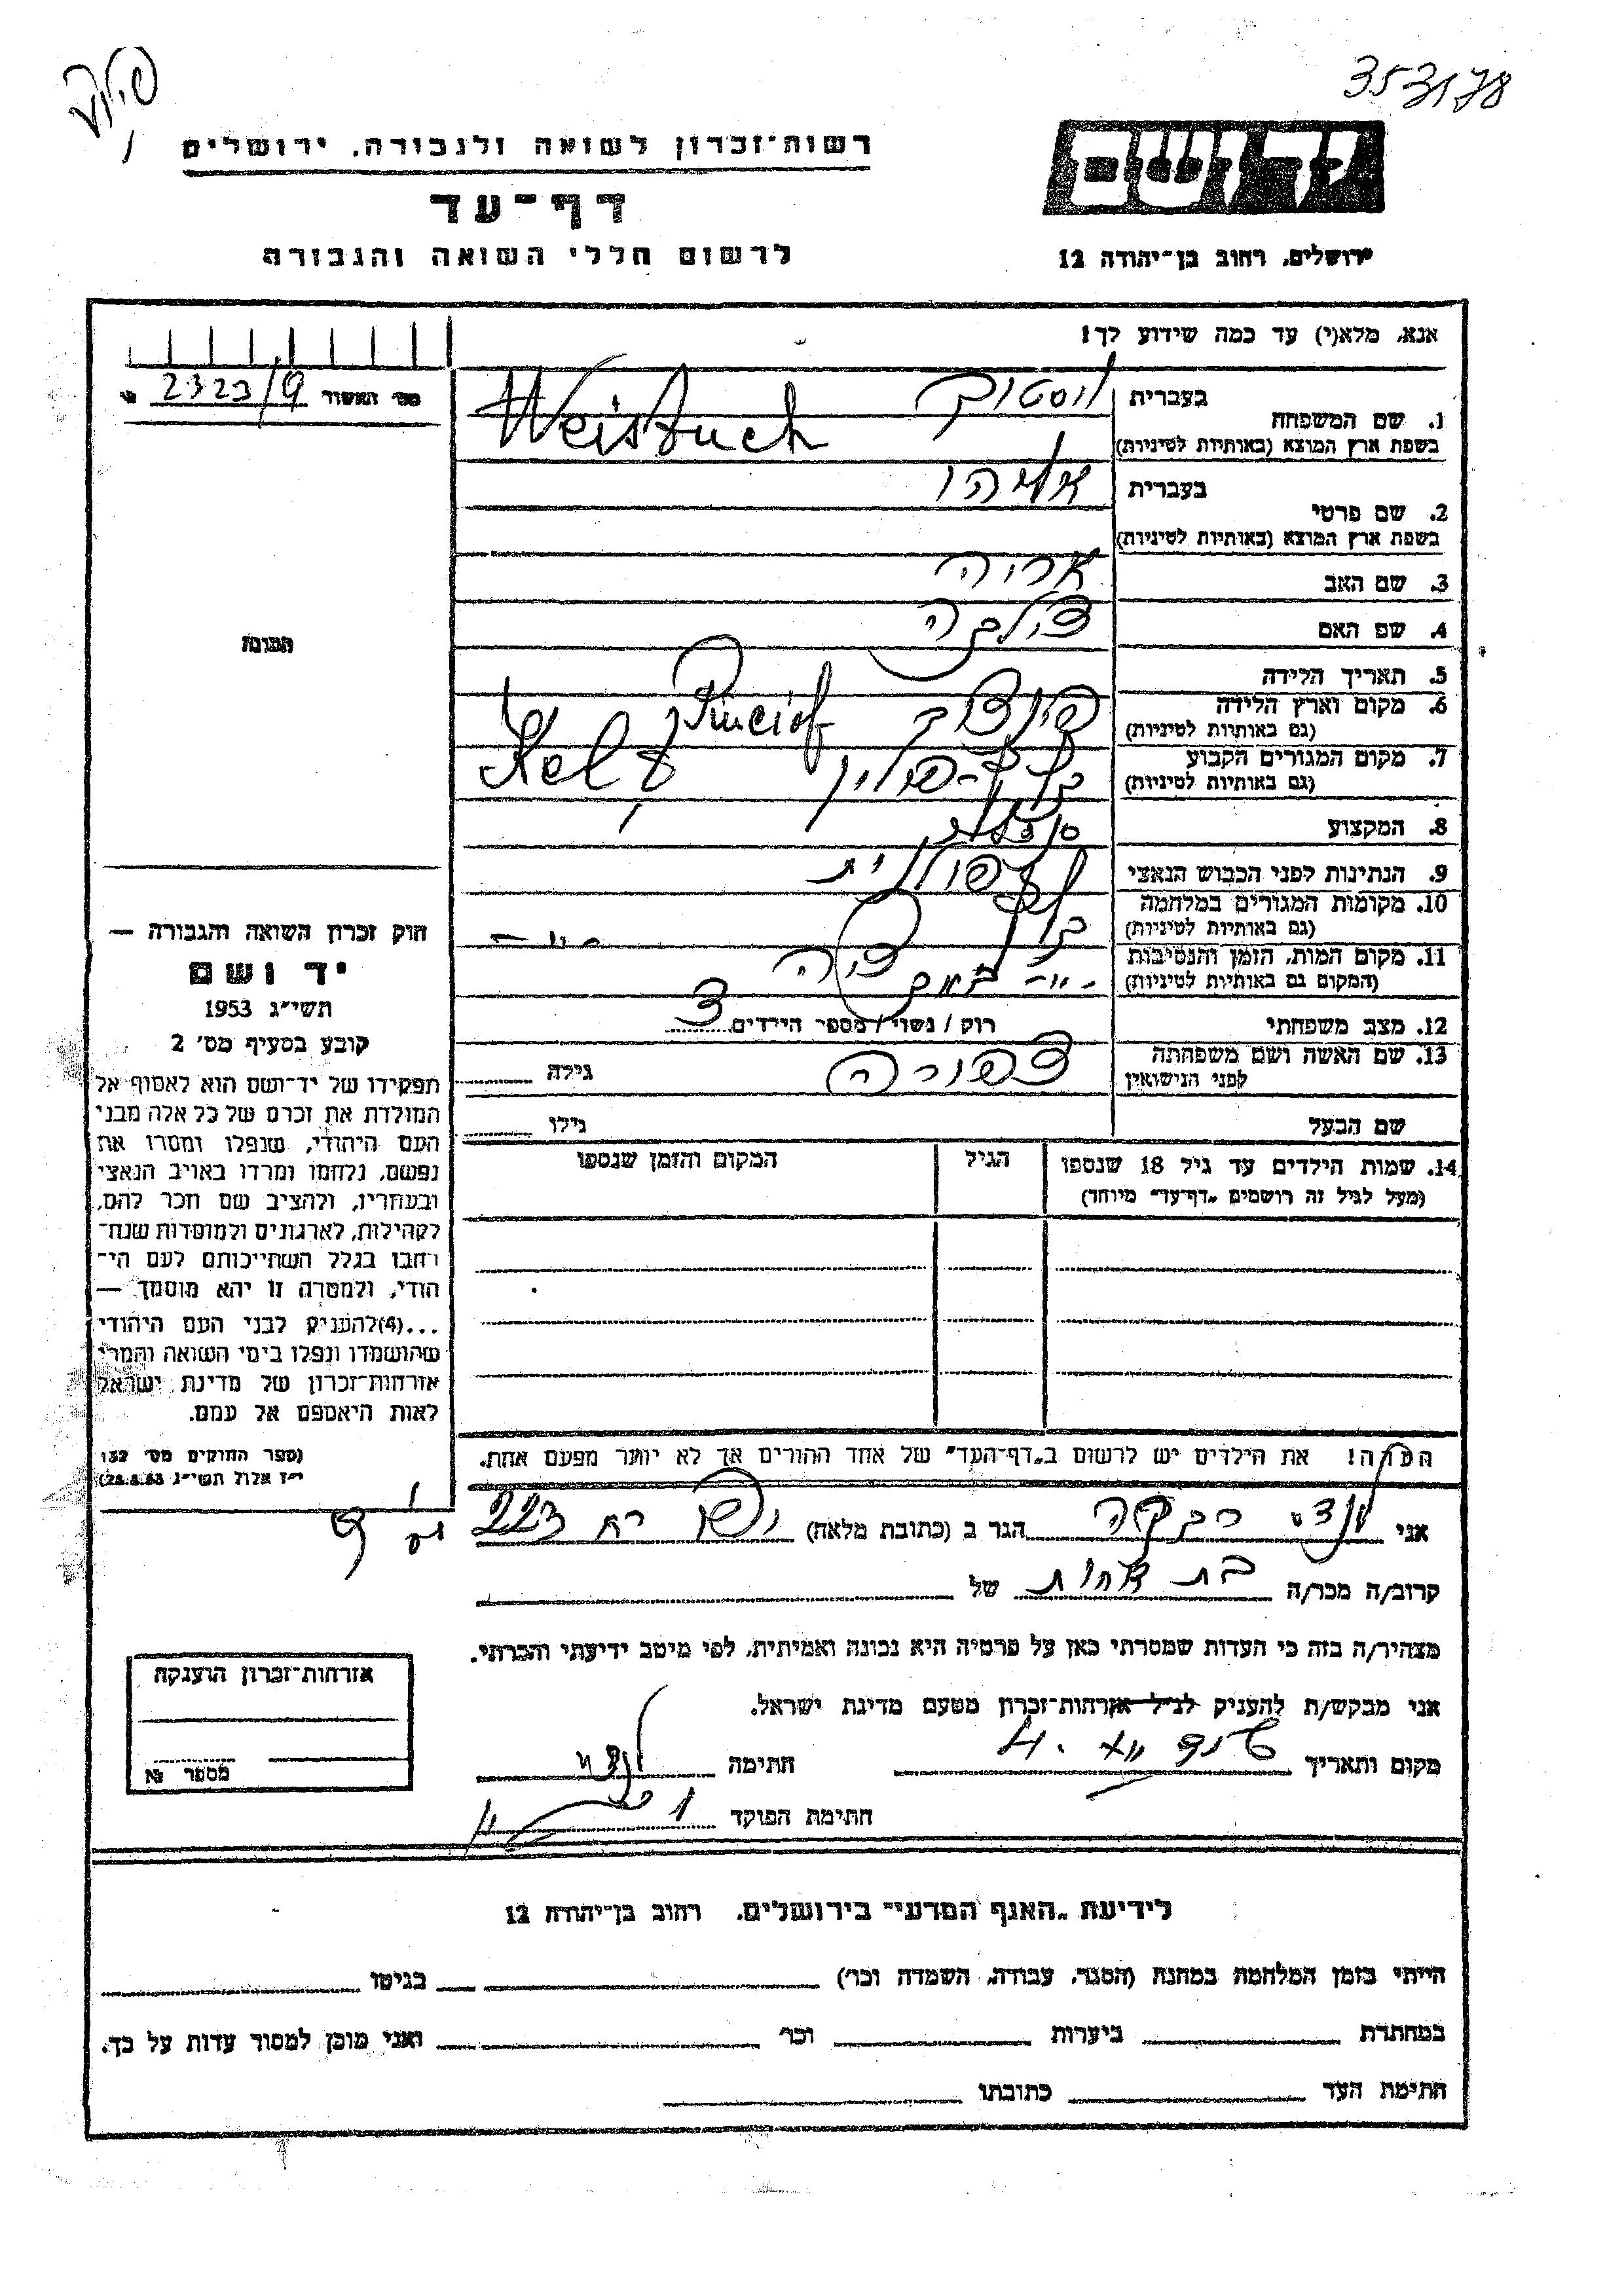 353178
רשות־זכרון לשואה ולגבורה, ירושלים
דף־עד
לרשום חללי השואה והגבורה
ידושם
ירושלים, רחוב בן־יהודה 12
אנא, מלא(י) עד כמה שידוע לך!
מס׳ האשור 2323/9
1. שם המשפחה
בעברית
בשפת ארץ המוצא (באותיות לטיניות) Weisbuch
2. שם פרטי
בעברית אליהו
בשפת ארץ המוצא (באותיות לטיניות)
3. שם האב אריה
4. שם האם
5. תאריך הלידה
6. מקום וארץ הלידה (גם באותיות לטיניות) פינצוב
7. מקום המגורים הקבוע (גם באותיות לטיניות) פולין
8. המקצוע
9. הנתינות לפני הכבוש הנאצי פולנית
10. מקומות המגורים במלחמה (גם באותיות לטיניות)
11. מקום המות, הזמן והנסיבות (המקום גם באותיות לטיניות)
12. מצב משפחתי רוק / נשוי / מספר הילדים 3
13. שם האשה ושם משפחתה לפני הנישואין צפורה גילה
שם הבעל גילו
14. שמות הילדים עד גיל 18 שנספו (מעל לגיל זה רושמים „דף־עד״ מיוחד)
הגיל
המקום והזמן שנספו
הערה! את הילדים יש לרשום ב„דף־העד״ של אחד ההורים אך לא יותר מפעם אחת.
התמונה
חוק זכרון השואה והגבורה —
יד ושם
תשי״ג 1953
קובע בסעיף מס׳ 2
תפקידו של יד־ושם הוא לאסוף אל
המולדת את זכרם של כל אלה מבני
העם היהודי, שנפלו ומסרו את
נפשם, נלחמו ומרדו באויב הנאצי
ובעוזריו, ולהציב שם וזכר להם,
לקהילות, לארגונים ולמוסדות שנח־
רבו בגלל השתייכותם לעם הי־
הודי, ולמטרה זו יהא מוסמך —
...(4) להעניק לבני העם היהודי
שהושמדו ונפלו בימי השואה והמרי
אזרחות־זכרון של מדינת ישראל
לאות היאספם אל עמם.
(ספר החוקים מס׳ 132
י״ז אלול תשי״ג 28.8.53)
אני רבקה הגר ב (כתובת מלאה)
קרוב/ה מכר/ה בת אחות של
מצהיר/ה בזה כי העדות שמסרתי כאן על פרטיה היא נכונה ואמיתית, לפי מיטב ידיעתי והכרתי.
אני מבקש/ת להעניק לנ״ל אזרחות־זכרון מטעם מדינת ישראל.
מקום ותאריך חתימה
חתימת הפוקד
אזרחות־זכרון הוענקה
מספר №
לידיעת „האגף המדעי״ בירושלים, רחוב בן־יהודה 12
הייתי בזמן המלחמה במחנה (הסגר, עבודה, השמדה וכר׳) בגיטו
במחתרת ביערות וכר׳ ואני מוכן למסור עדות על כך.
חתימת העד כתובתו